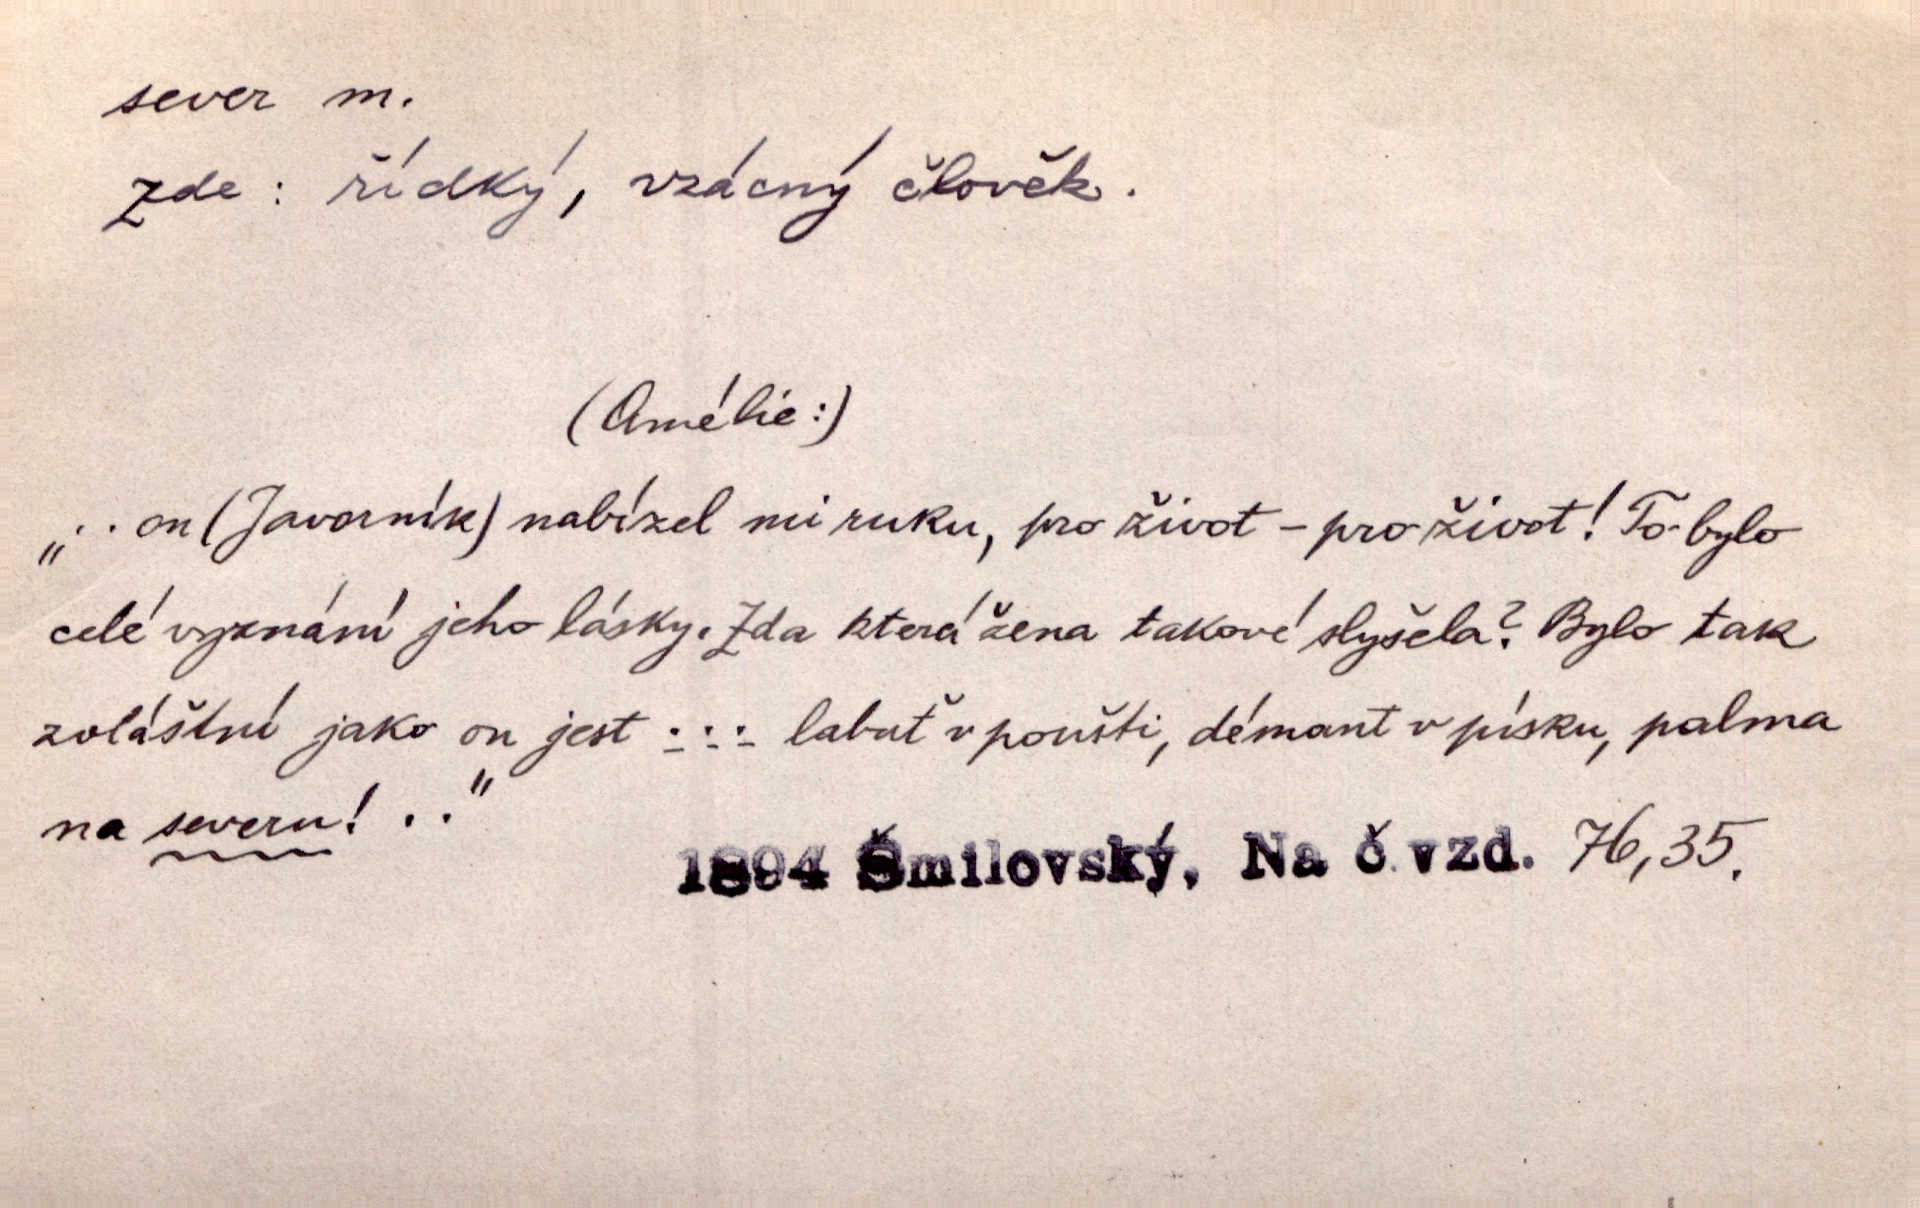 sever m.
zde : řídký, vzácný člověk.
(Amélie:)
„.. on (Javorník) nabízel mi ruku, pro život – pro život! To bylo
celé vyznání jeho lásky. Zda která žena takové slyšela? Bylo tak
zvláštní jako on jest ... labuť v poušti, démant v písku, palma
na severu! .."
1894 Šmilovský, Na č vzd. 76,35.